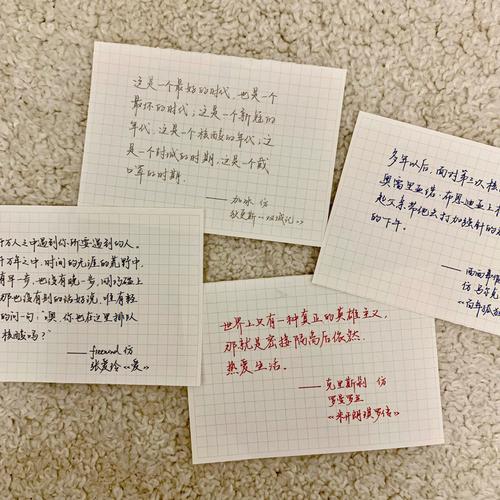 这是一个最好的时代，也是一个
最坏的时代；这是一个新冠的
年代，这是一个核酸的年代；这
是一个封城的时期，这是一个戴
口罩的时期．
——加冰 仿
狄更斯《双城记》
多年以后，面对第三次核
奥雷里亚诺·布恩迪亚上
起父亲带他去打加强针的
的下午．
仿马尔克
《百年孤独
千万人之中遇到你所要遇到的人。
千万年之中，时间的无涯的荒野中，
有早一步，也没有晚一步，刚巧碰上
那也没有别的话好说，唯有轻
的问一句：“噢，你也在这里排队
核酸吗？”
——freewnd 仿
张爱玲《爱》
世界上只有一种真正的英雄主义，
那就是密接隔离后依然
热爱生活。
——克里斯 仿
罗曼罗兰
《米开朗琪罗传》